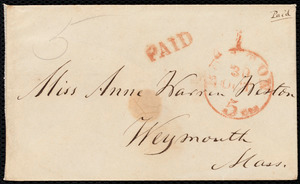 Paid
5
PAID
5 cts
Miss Anne Warren Weston
Weymouth
Mass.